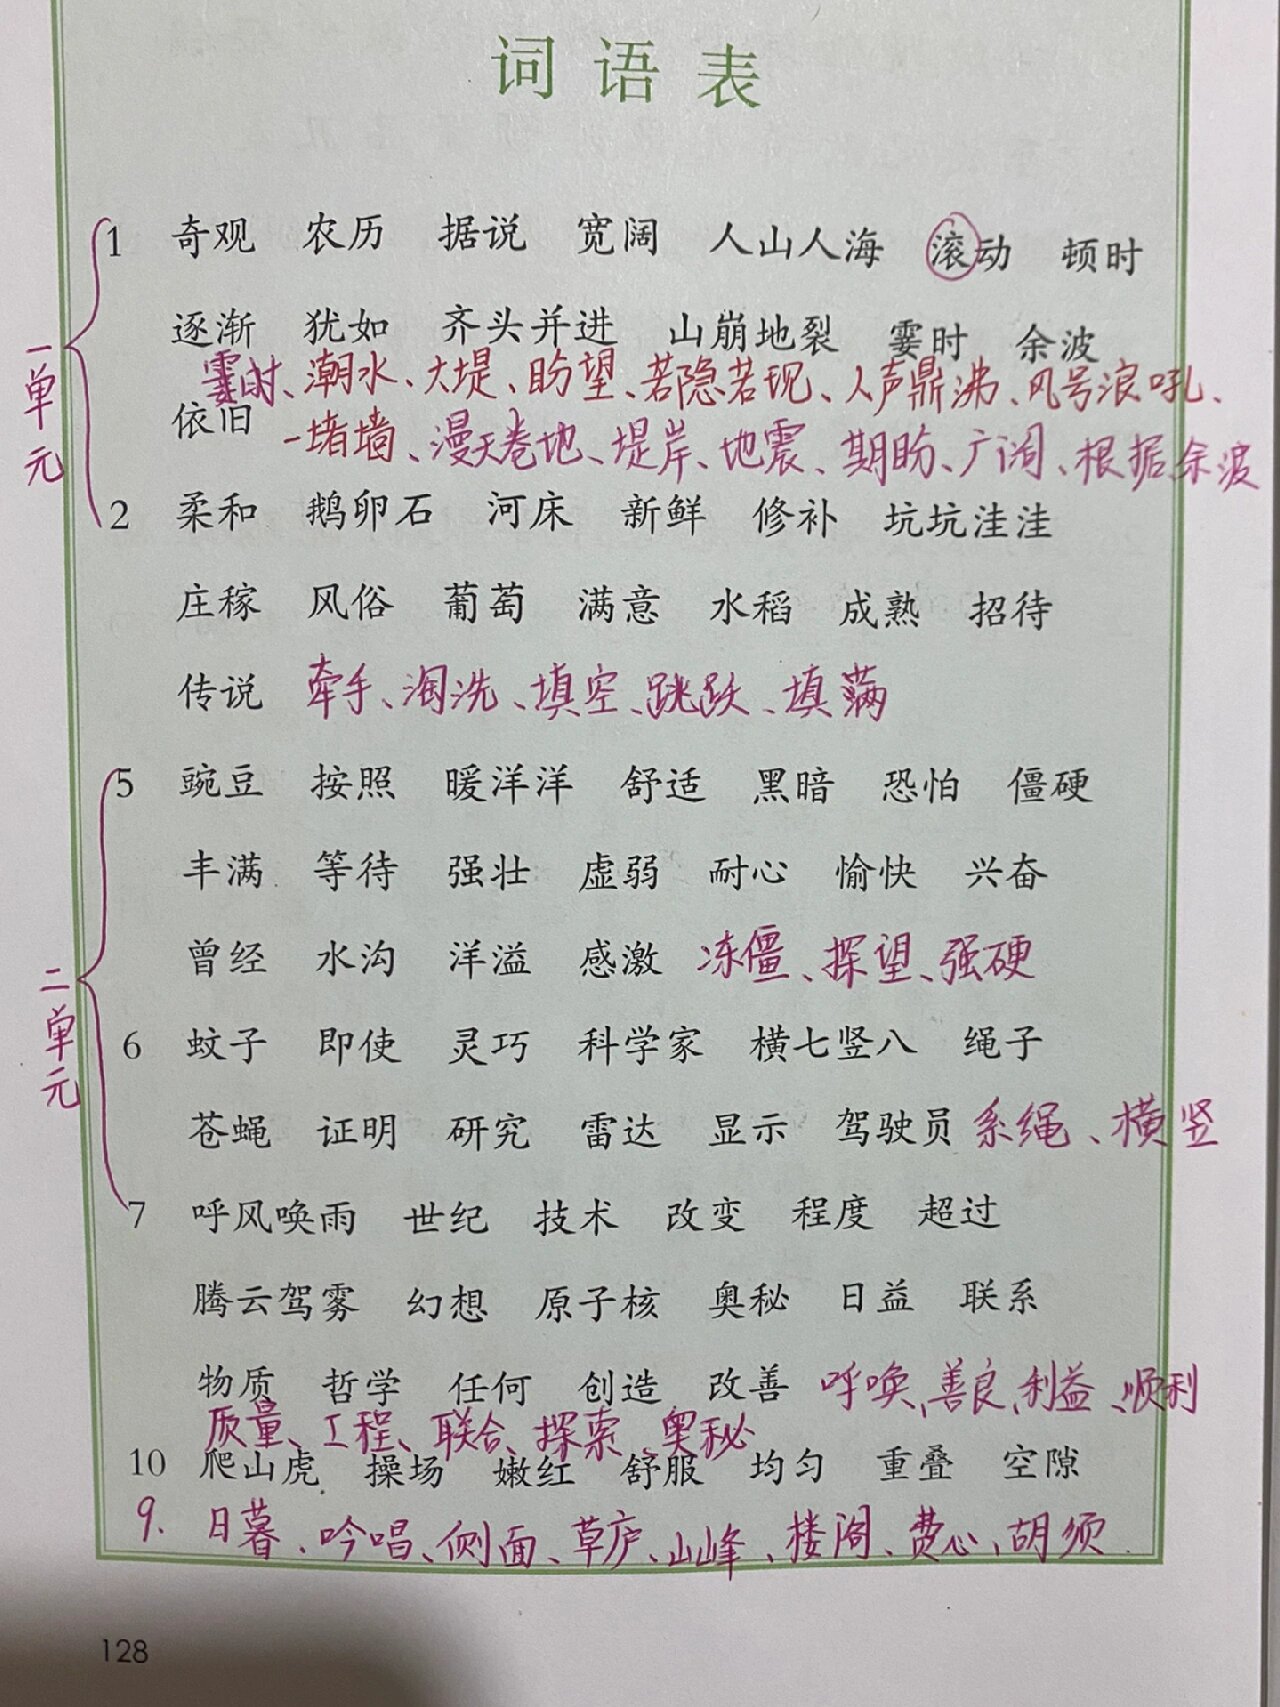 词语表
1 奇观 农历 据说 宽阔 人山人海 滚动 顿时
逐渐 犹如 齐头并进 山崩地裂 霎时 余波
霎时、潮水、大堤、盼望、若隐若现、人声鼎沸、风号浪吼、
依旧 一堵墙、漫天卷地、堤岸、地震、期盼、广阔、根据、余波
一单元
2 柔和 鹅卵石 河床 新鲜 修补 坑坑洼洼
庄稼 风俗 葡萄 满意 水稻 成熟 招待
传说 牵手、淘洗、填空、跳跃、填满
5 豌豆 按照 暖洋洋 舒适 黑暗 恐怕 僵硬
丰满 等待 强壮 虚弱 耐心 愉快 兴奋
曾经 水沟 洋溢 感激 冻僵、探望、强硬
二单元
6 蚊子 即使 灵巧 科学家 横七竖八 绳子
苍蝇 证明 研究 雷达 显示 驾驶员 系绳、横竖
7 呼风唤雨 世纪 技术 改变 程度 超过
腾云驾雾 幻想 原子核 奥秘 日益 联系
物质 哲学 任何 创造 改善 呼唤、善良、利益、顺利
质量、工程、联合、探索、奥秘
10 爬山虎 操场 嫩红 舒服 均匀 重叠 空隙
9. 日暮、吟唱、侧面、草庐、山峰、楼阁、费心、胡须
128